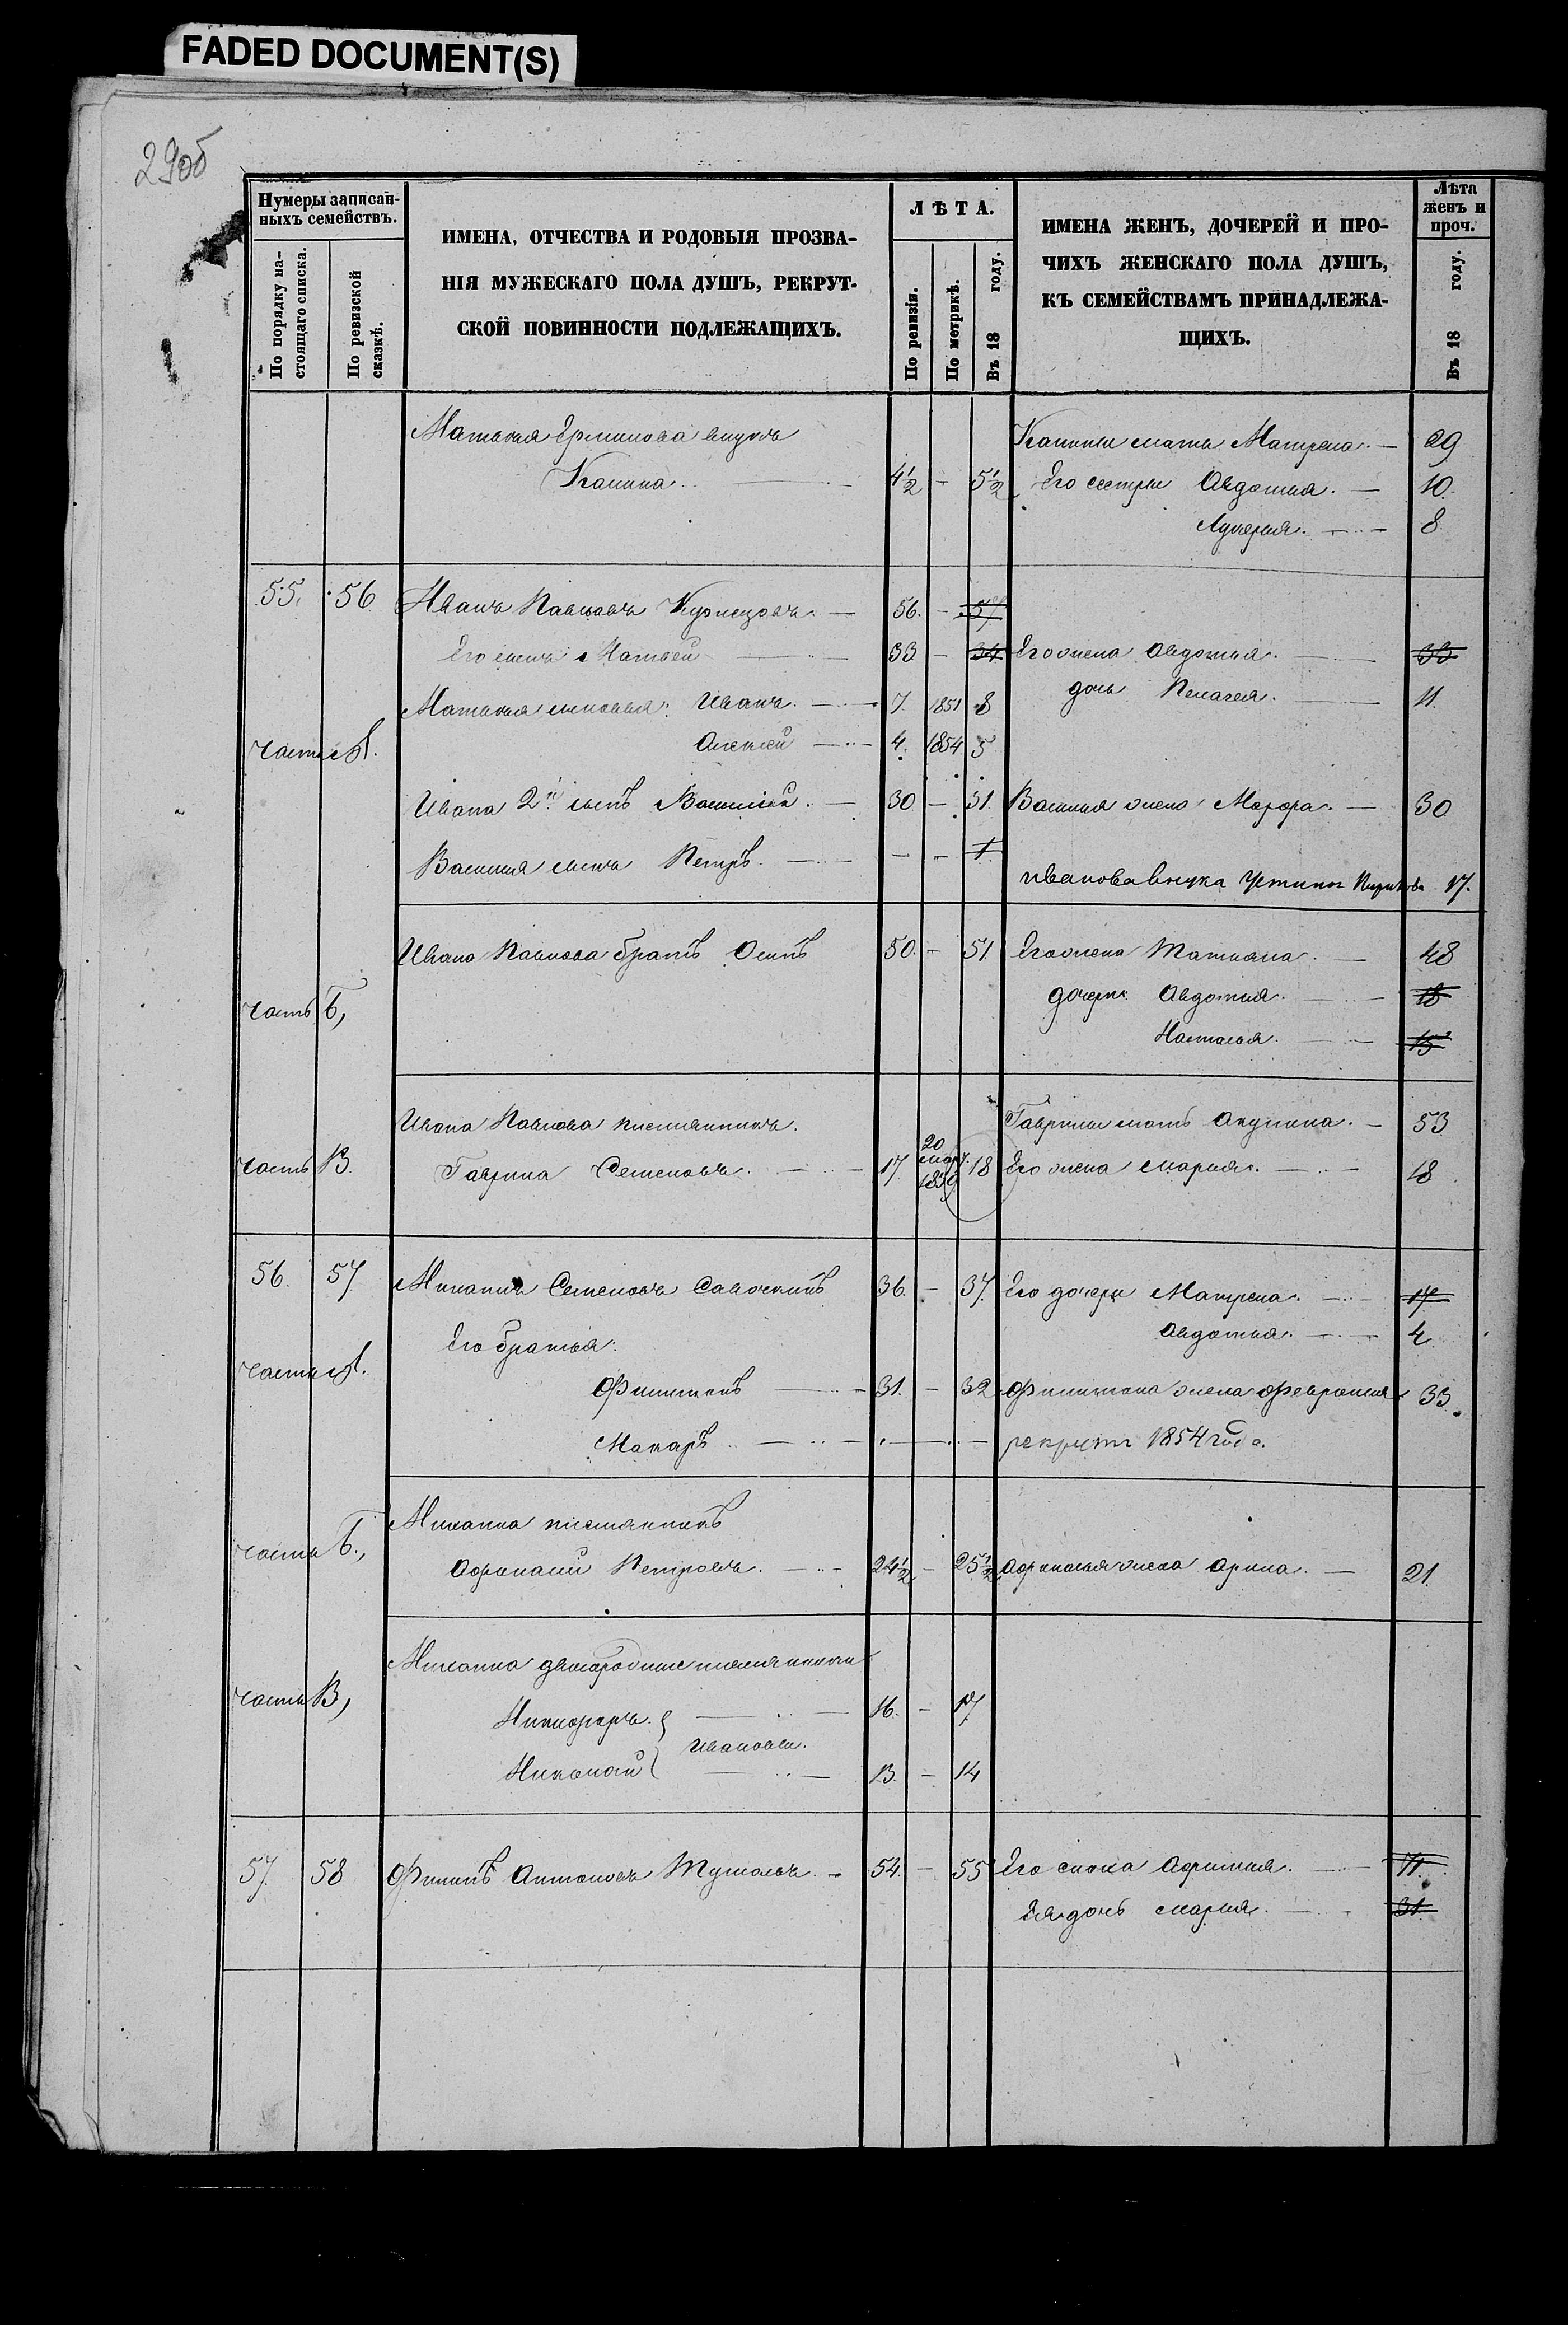 FADED DOCUMENT(S)
29об
Нумеры записан-
ныхъ семействъ.
По порядку на-
стоящаго списка.
По ревизской
сказкѣ.
ИМЕНА, ОТЧЕСТВА И РОДОВЫЯ ПРОЗВА-
НІЯ МУЖЕСКАГО ПОЛА ДУШЪ, РЕКРУТ-
СКОЙ ПОВИННОСТИ ПОДЛЕЖАЩИХЪ.
ЛѢТА.
По ревизіи.
По метрикѣ.
Въ 18 году.
ИМЕНА ЖЕНЪ, ДОЧЕРЕЙ И ПРО-
ЧИХЪ ЖЕНСКАГО ПОЛА ДУШЪ,
КЪ СЕМЕЙСТВАМЪ ПРИНАДЛЕЖА-
ЩИХЪ.
Лѣта
женъ и
проч.
Въ 18 году.
Матвея Ермилова внукъ Калины мать Матрена. — 29
Калина. — 4½ — 5½ Его сестры Авдотья. — 10.
Лукерья. — 8
55. 56 Иванъ Павловъ Кузнецовъ. — 56. — 57
Его сынъ Матвей — 33 — 34 Его жена Авдотья. — 33
Матвея сыновья: Иванъ. — 7. 1851 8 дочь Пелагея. — 11
часть А. Алексей — 4. 1854 5
Ивана 2й сынъ Василий. — 30 — 31 Василия жена Марфа. — 30
Василия сынъ Петръ. — — — 1
Иванова внука Устинья 17.
Ивана Павлова братъ Осипъ 50. — 51 Его жена Татьяна. — 48
часть Б, дочери Авдотья. — 18
Настасья. — 15
Ивана Павлова племянникъ. Гаврилы мать Акулина. — 53
часть В. Гаврила Семеновъ. — 17 20 март. 1839 18 Его жена Марья. — 18
56. 57 Михаилъ Семеновъ Савочкинъ 36. — 37. Его дочери Матрена. — 17
Его братья: Авдотья. — 4
часть А. Филимонъ — 31. — 32 Филимона жена Февронья 33
Макаръ — — — рекрутъ 1854 года.
Михаила племянникъ
часть Б., Афанасий Петровъ. — 24½ — 25½ Афанасья жена Арина. — 21.
Михаила двоюродные племянники
часть В, Никифоръ. — 16. — 17
Ивановы.
Николай — 13. — 14
57. 58 Филипъ Антоновъ — 54. — 55 Его сноха Афимья. — 71.
Ея дочь Марья. — 31.